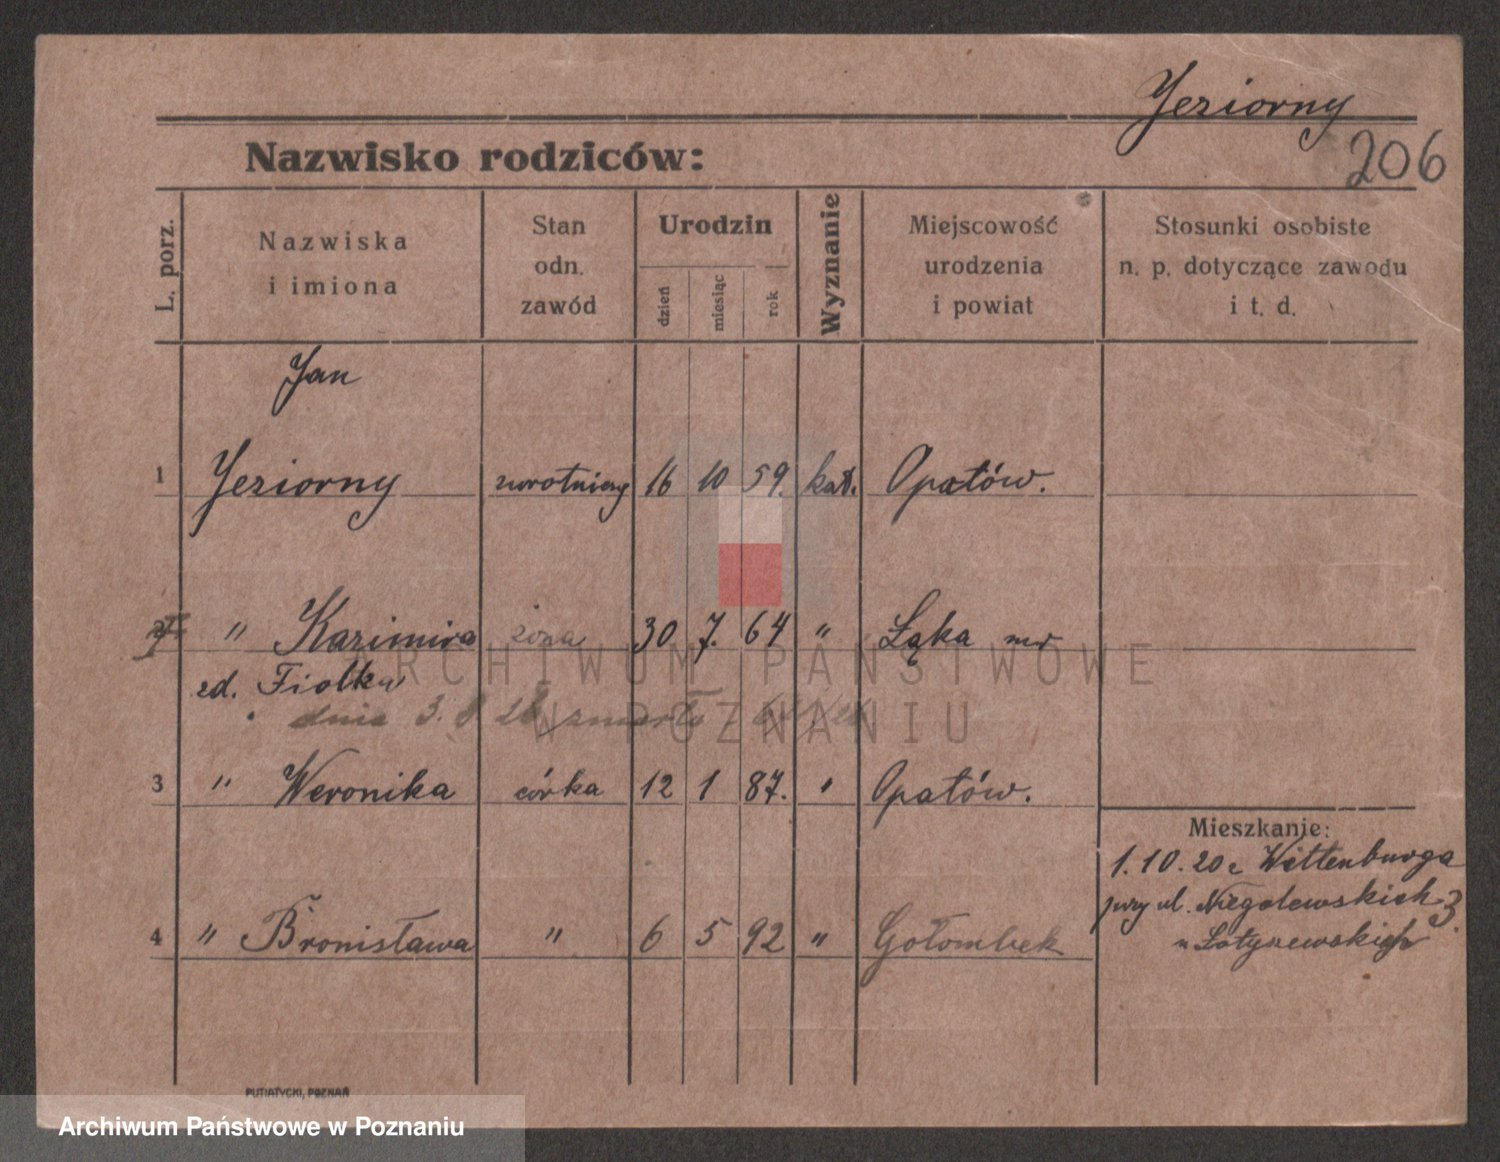 Jeziorny
206
Nazwisko rodziców:
L. porz.
Nazwiska
i imiona
Stan
odn.
zawód
Urodzin
dzień
miesiąc
rok
Wyznanie
Miejscowość
urodzenia
i powiat
Stosunki osobiste
n. p. dotyczące zawodu
i t. d.
Jan
1 Jeziorny zwrotniczy 16 10 59. kat. Opatów.
" Kazimira żona 30 7. 64 " Łąka
zd. Fiolka
dnia 3. 8 28 zmarła
3 " Weronika córka 12 1 87. " Opatów.
Mieszkanie:
1.10.20 z Wittenburga
przy ul. Niegolewskich 3.
4 " Bronisława " 6 5 92 " Gołombek
u Łotyszewskich
ARCHIWUM PAŃSTWOWE
W POZNANIU
PUTIATYCKI, POZNAŃ
Archiwum Państwowe w Poznaniu